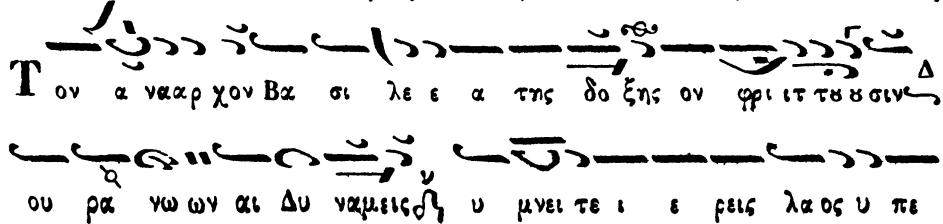 Τ ον α νααρ χον Βα σι λε ε α της δο ξης ον φρι ιτ τȣ ȣ σιν Δ
ου ρα νω ων αι Δυ ναμεις υ μνει τε ι ε ρεις λαος υ πε